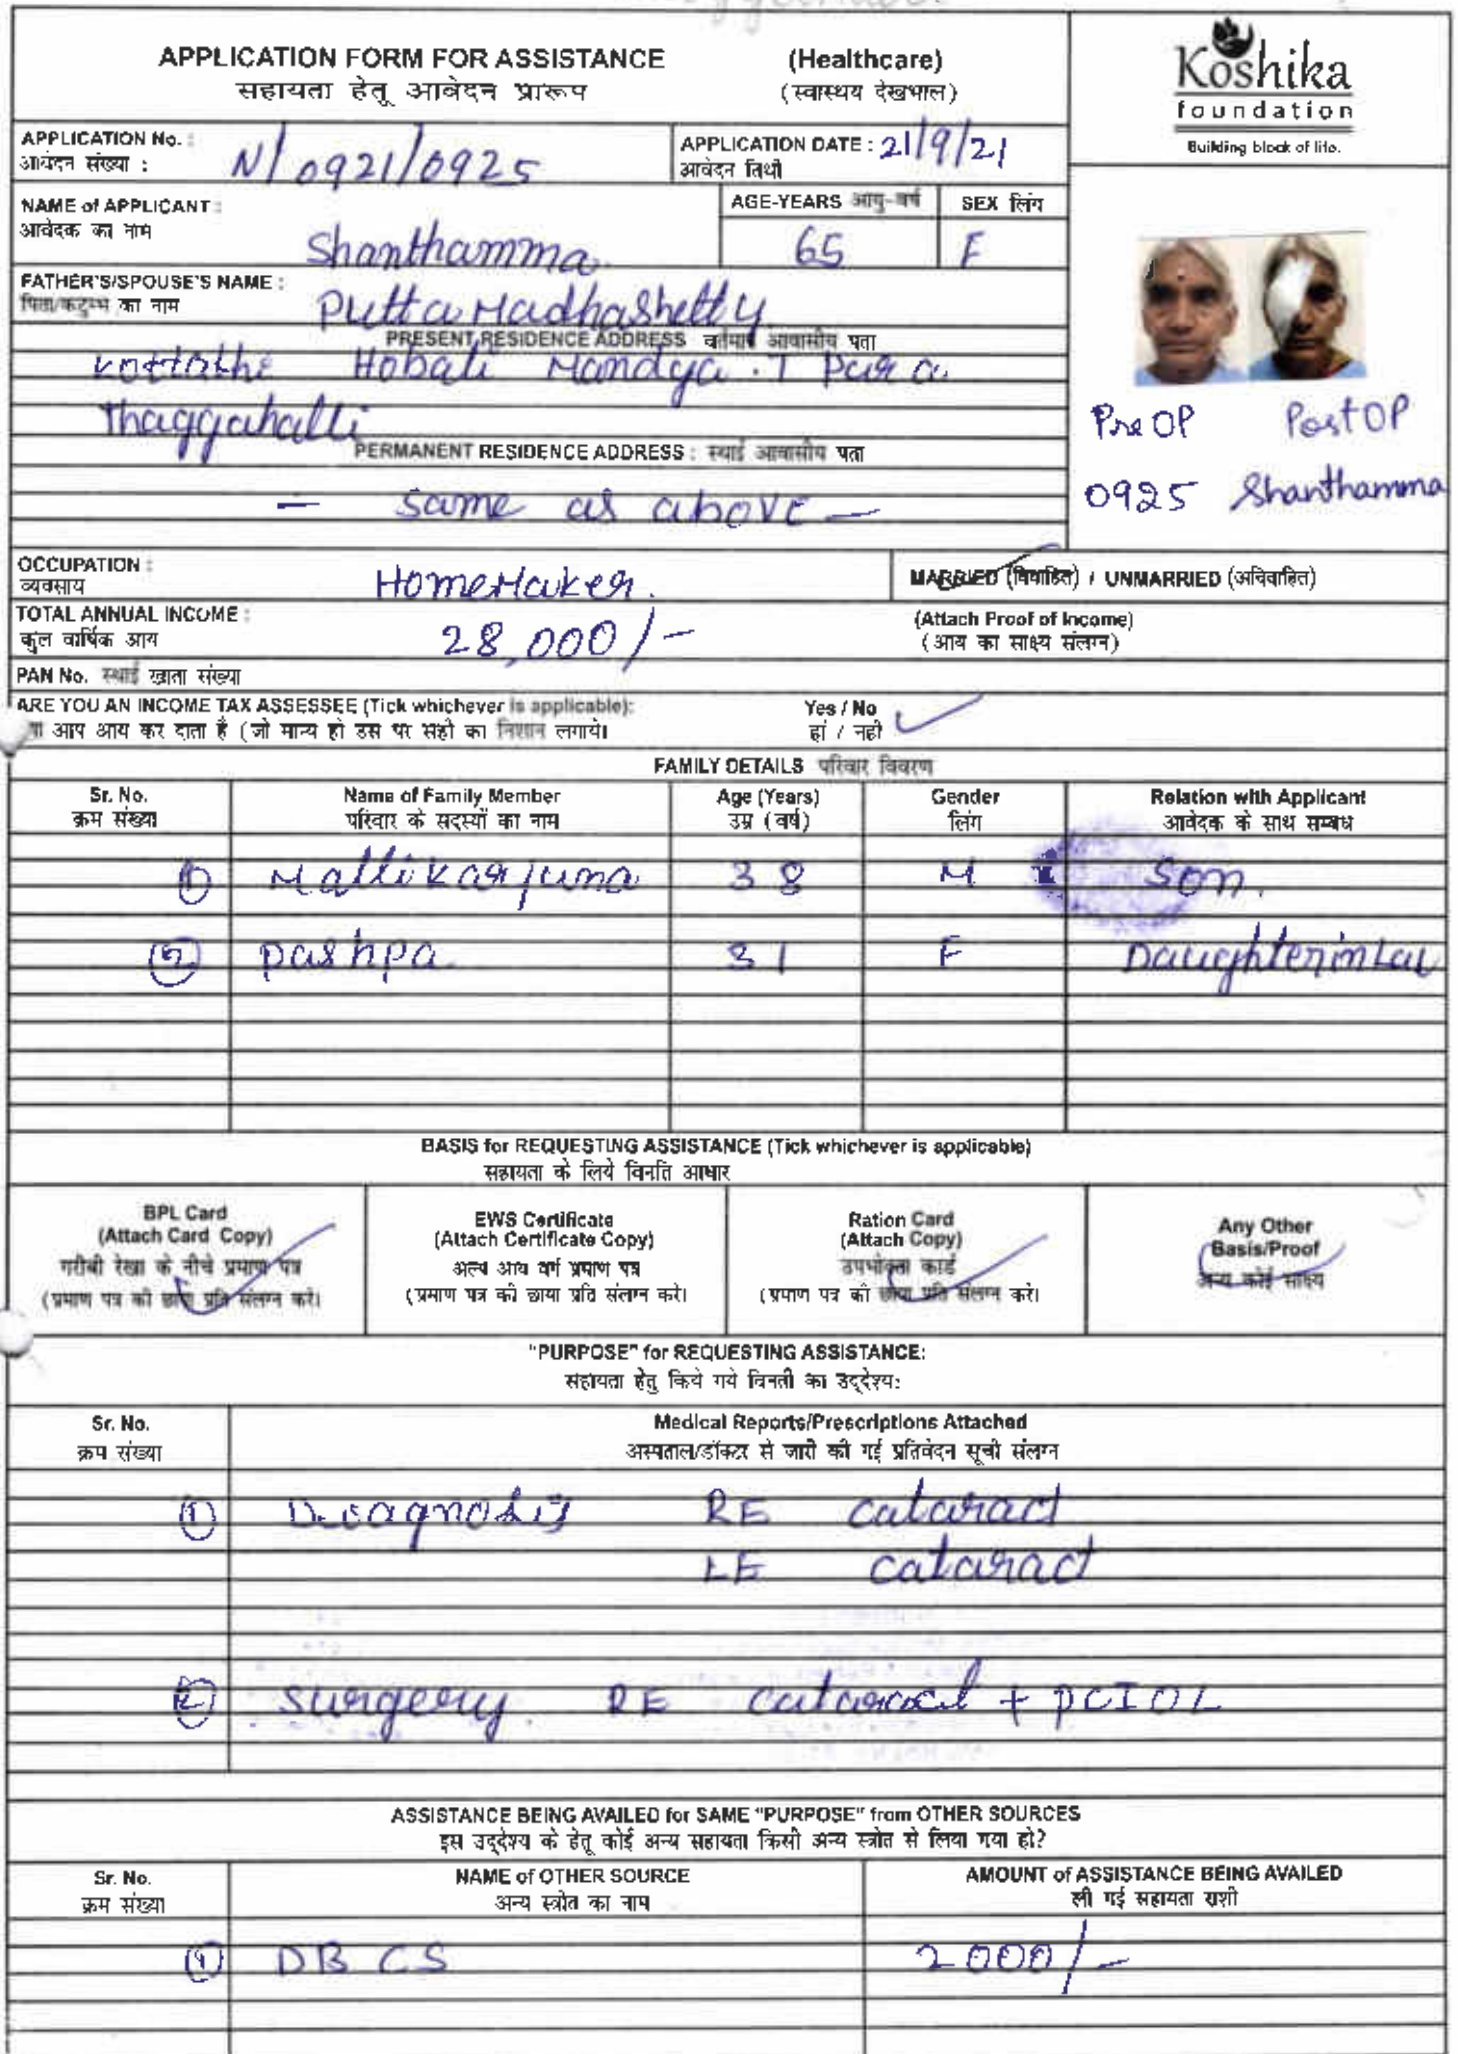 APPLICATION FORM FOR ASSISTANCE (Healthcare)
सहायता हेतू आवेदन प्रारूप (स्वास्थय देखभाल)
Koshika
foundation
Building block of life.
APPLICATION No. : N/0921/0925
आवेदन संख्या :
APPLICATION DATE : 21/9/21
आवेदन तिथी
NAME of APPLICANT : Shanthamma
आवेदक का नाम
AGE-YEARS आयु-वर्ष 65
SEX लिंग F
FATHER'S/SPOUSE'S NAME : Putta Madhashetty
पिता/कटुम्भ का नाम
PRESENT RESIDENCE ADDRESS वर्तमान आवासीय पता
Hobali Mandya . T
Thaggahalli
PERMANENT RESIDENCE ADDRESS : स्थाई आवासीय पता
— same as above —
Pre OP Post OP
0925 Shanthamma
OCCUPATION : HomeMaker.
व्यवसाय
MARRIED (विवाहित) / UNMARRIED (अविवाहित)
TOTAL ANNUAL INCOME : 28,000/-
कुल वार्षिक आय
(Attach Proof of Income)
(आय का साक्ष्य संलग्न)
PAN No. स्थाई खाता संख्या
ARE YOU AN INCOME TAX ASSESSEE (Tick whichever is applicable): Yes / No
आप आय कर दाता है (जो मान्य हो उस पर सही का निशान लगाये। हां / नही
FAMILY DETAILS परिवार विवरण
Sr. No. Name of Family Member Age (Years) Gender Relation with Applicant
क्रम संख्या परिवार के सदस्यों का नाम उम्र (वर्ष) लिंग आवेदक के साथ सम्बध
1 Mallikarjuna 38 M Son.
2 pashpa 31 F DaughterinLaw
BASIS for REQUESTING ASSISTANCE (Tick whichever is applicable)
सहायता के लिये विनति आधार
BPL Card
(Attach Card Copy)
गरीबी रेखा के नीचे प्रमाण पत्र
(प्रमाण पत्र की छाया प्रति संलग्न करे।
EWS Certificate
(Attach Certificate Copy)
अल्प आय वर्ग प्रमाण पत्र
(प्रमाण पत्र की छाया प्रति संलग्न करे।
Ration Card
(Attach Copy)
उपभोक्ता कार्ड
(प्रमाण पत्र की छाया प्रति संलग्न करे।
Any Other
Basis/Proof
अन्य कोई साक्ष्य
"PURPOSE" for REQUESTING ASSISTANCE:
सहायता हेतु किये गये विनती का उद्देश्य:
Sr. No. Medical Reports/Prescriptions Attached
क्रम संख्या अस्पताल/डॉक्टर से जारी की गई प्रतिवेदन सूची संलग्न
1 Diagnosis RE cataract
LE cataract
2 surgery. RE cataract + PCIOL
ASSISTANCE BEING AVAILED for SAME "PURPOSE" from OTHER SOURCES
इस उद्देश्य के हेतू कोई अन्य सहायता किसी अन्य स्त्रोत से लिया गया हो?
Sr. No. NAME of OTHER SOURCE AMOUNT of ASSISTANCE BEING AVAILED
क्रम संख्या अन्य स्त्रोत का नाम ली गई सहायता राशी
1 DBCS 2000/-